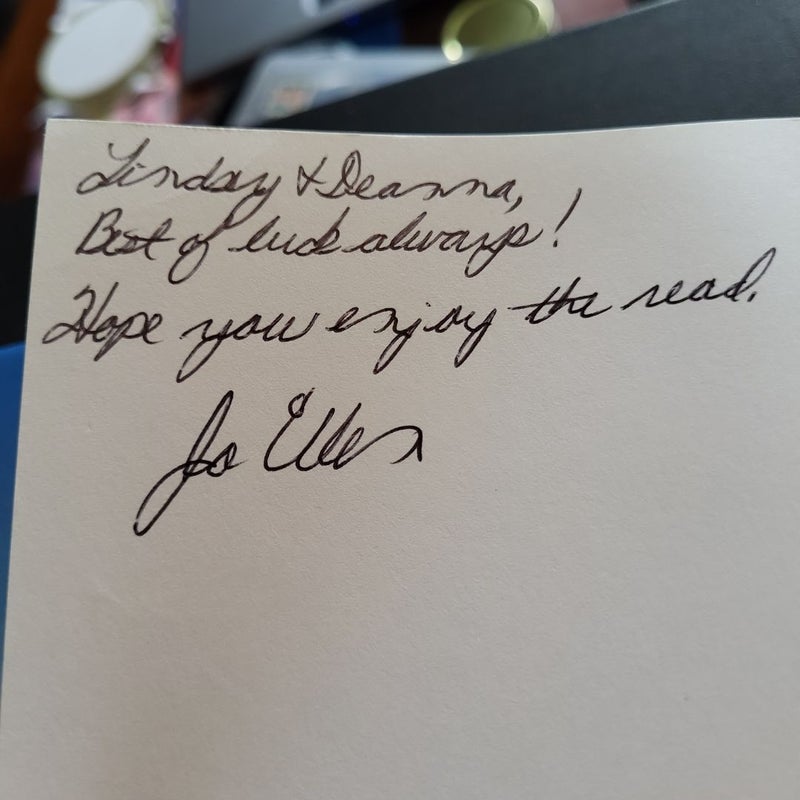 Lindsay & Deanna,
Best of luck always!
Hope you enjoy the read.
Jo Ellen